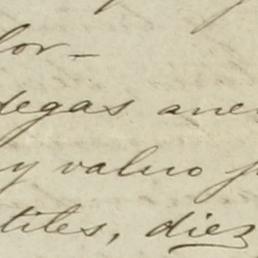 lor_
degas ane
y valuo
tiles, diez